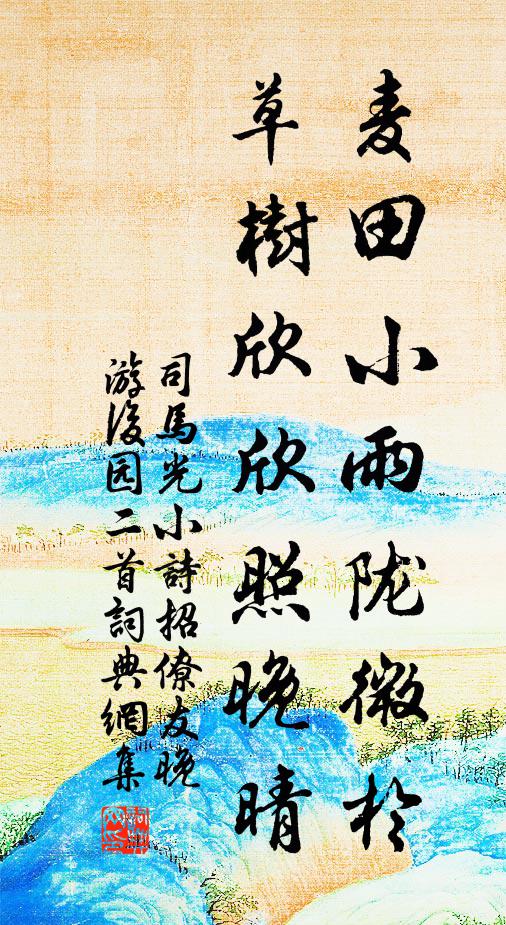 麦田小雨陇微於
草樹欣欣照晚晴
司馬光小詩招僚友晚
游後园二首詞典網集